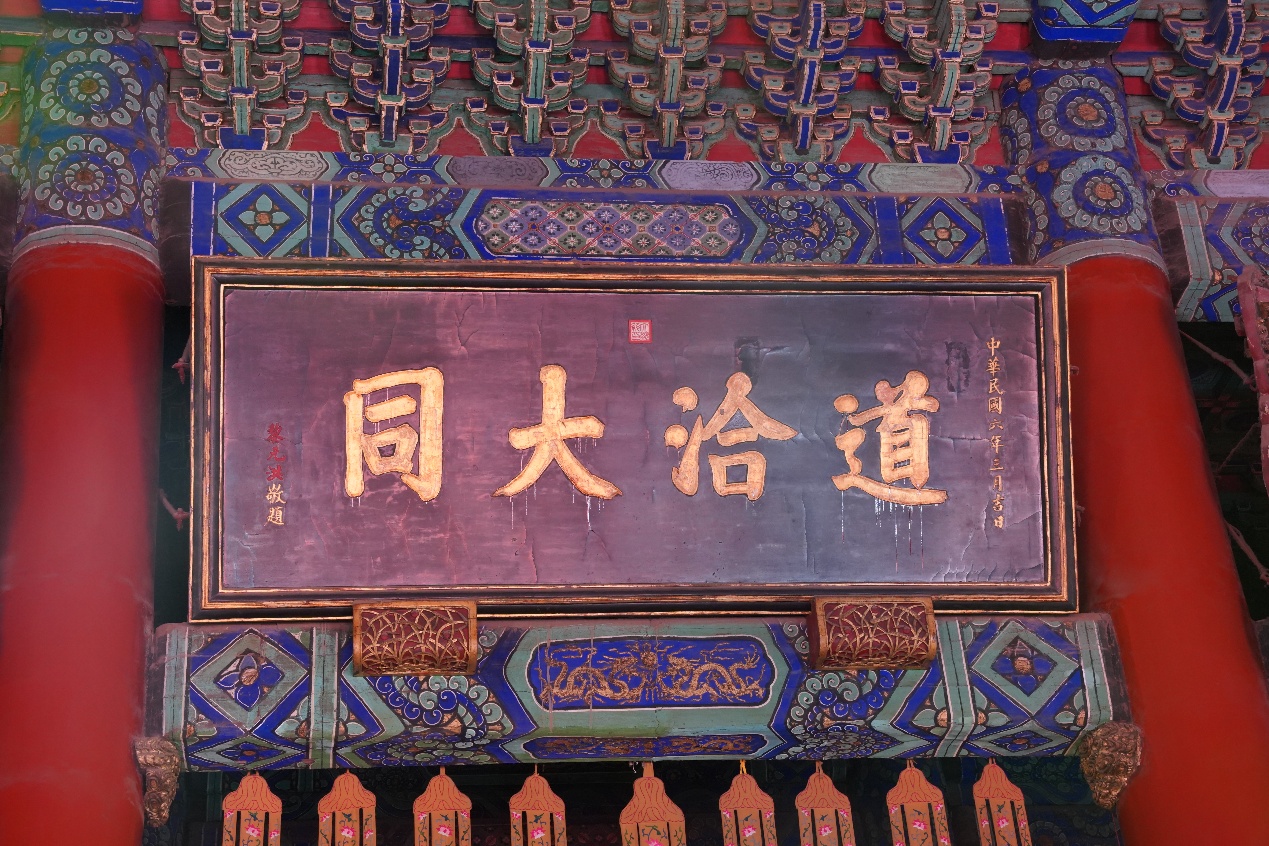 中華民國六年三月吉日
道洽大同
黎元洪敬題